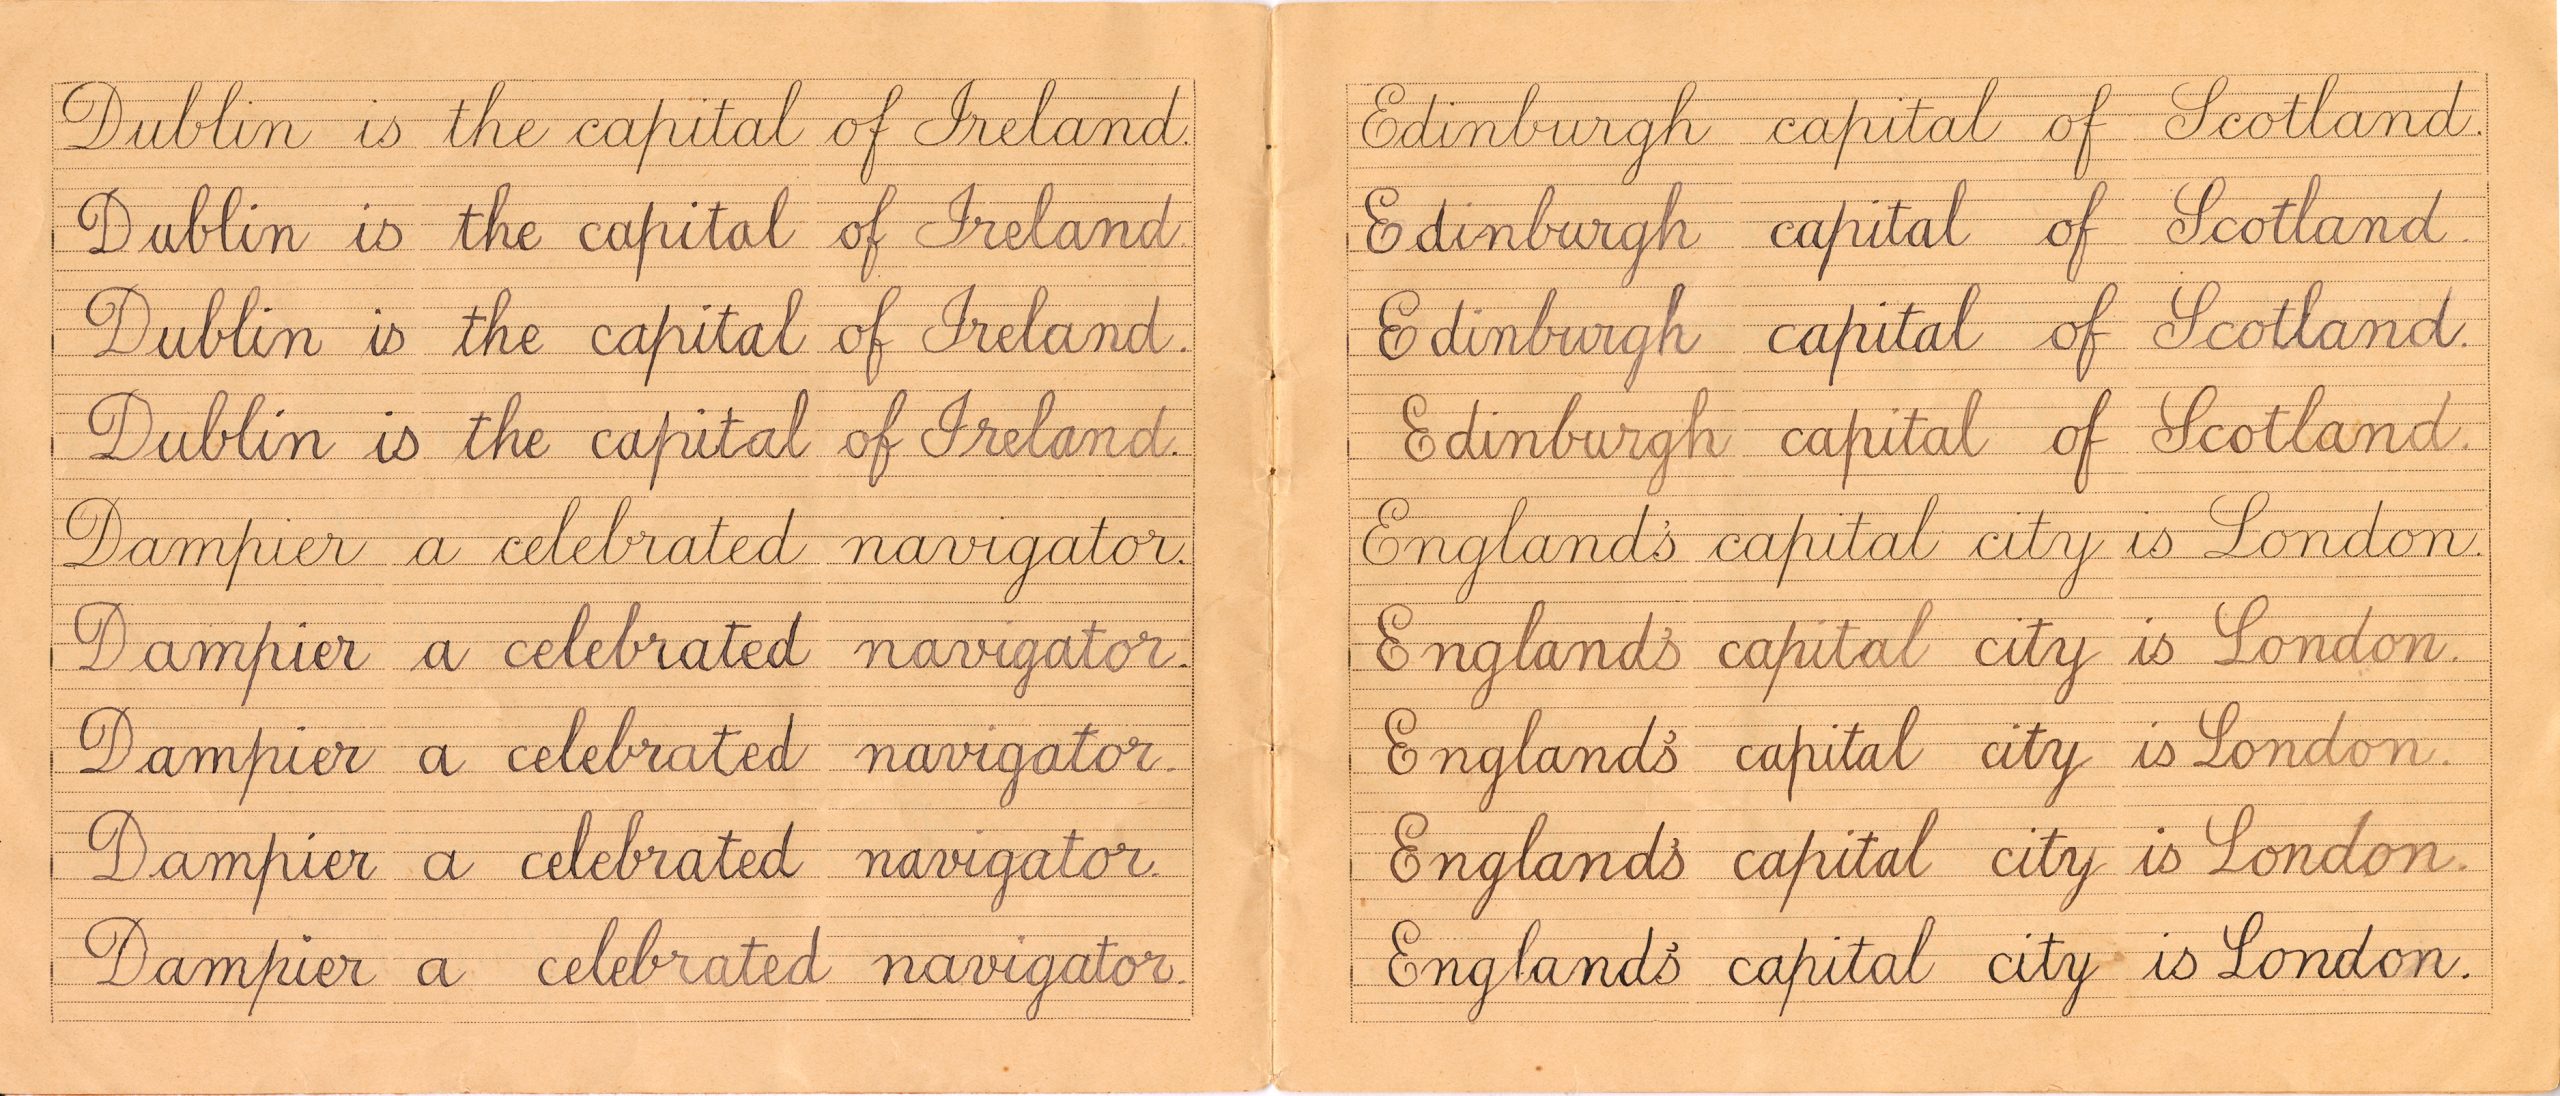 Dublin is the capital of Ireland.
Dublin is the capital of Ireland.
Dublin is the capital of Ireland.
Dublin is the capital of Ireland.
Dampier a celebrated navigator.
Dampier a celebrated navigator.
Dampier a celebrated navigator.
Dampier a celebrated navigator.
Dampier a celebrated navigator.
Edinburgh capital of Scotland.
Edinburgh capital of Scotland.
Edinburgh capital of Scotland.
Edinburgh capital of Scotland.
England's capital city is London.
England's capital city is London.
England's capital city is London.
England's capital city is London.
England's capital city is London.